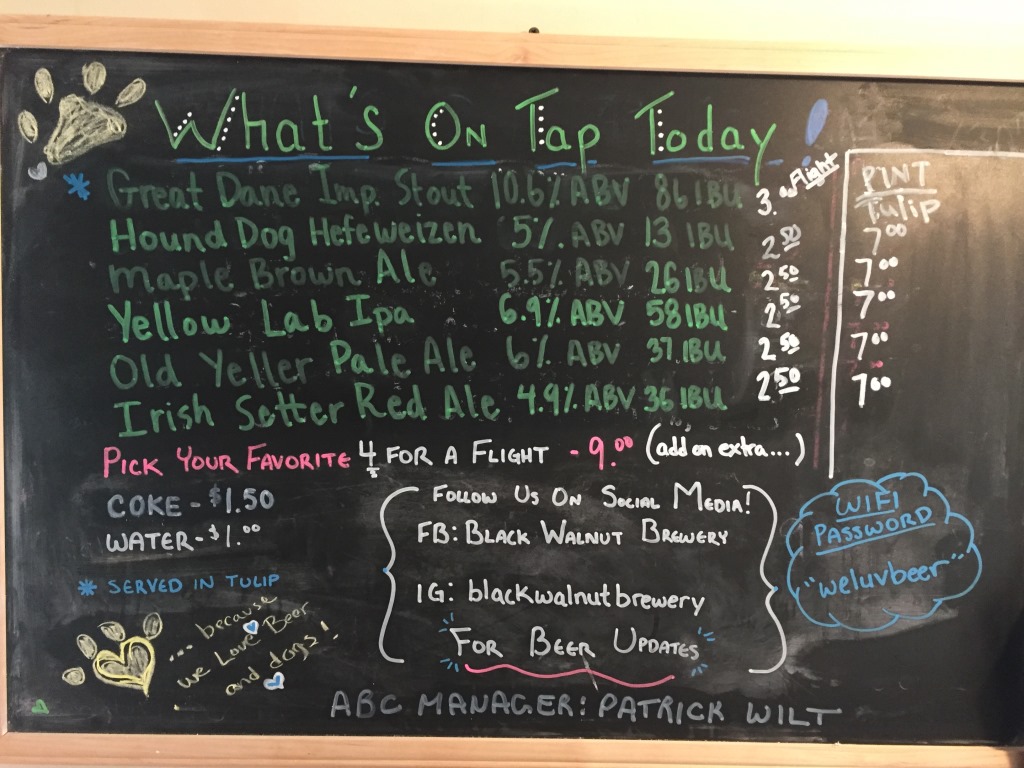 What's On Tap Today!
* Great Dane Imp. Stout 10.6% ABV 86 IBU 3. a Flight
Hound Dog Hefeweizen 5% ABV 13 IBU 2.50
Maple Brown Ale 5.5% ABV 26 IBU 2.50
Yellow Lab Ipa 6.9% ABV 58 IBU 2.50
Old Yeller Pale Ale 6% ABV 37 IBU 2.50
Irish Setter Red Ale 4.9% ABV 36 IBU 2.50
PINT
Tulip
7.00
7.00
7.00
7.00
7.00
PICK YOUR FAVORITE 4 FOR A FLIGHT - 9.00 (add on extra...)
COKE - $1.50
WATER - $1.00
* SERVED IN TULIP
... because
we Love Beer
and dogs!
FOLLOW US ON SOCIAL MEDIA!
FB: BLACK WALNUT BREWERY
IG: blackwalnutbrewery
FOR BEER UPDATES
WIFI
PASSWORD
"weluvbeer"
ABC MANAGER: PATRICK WILT